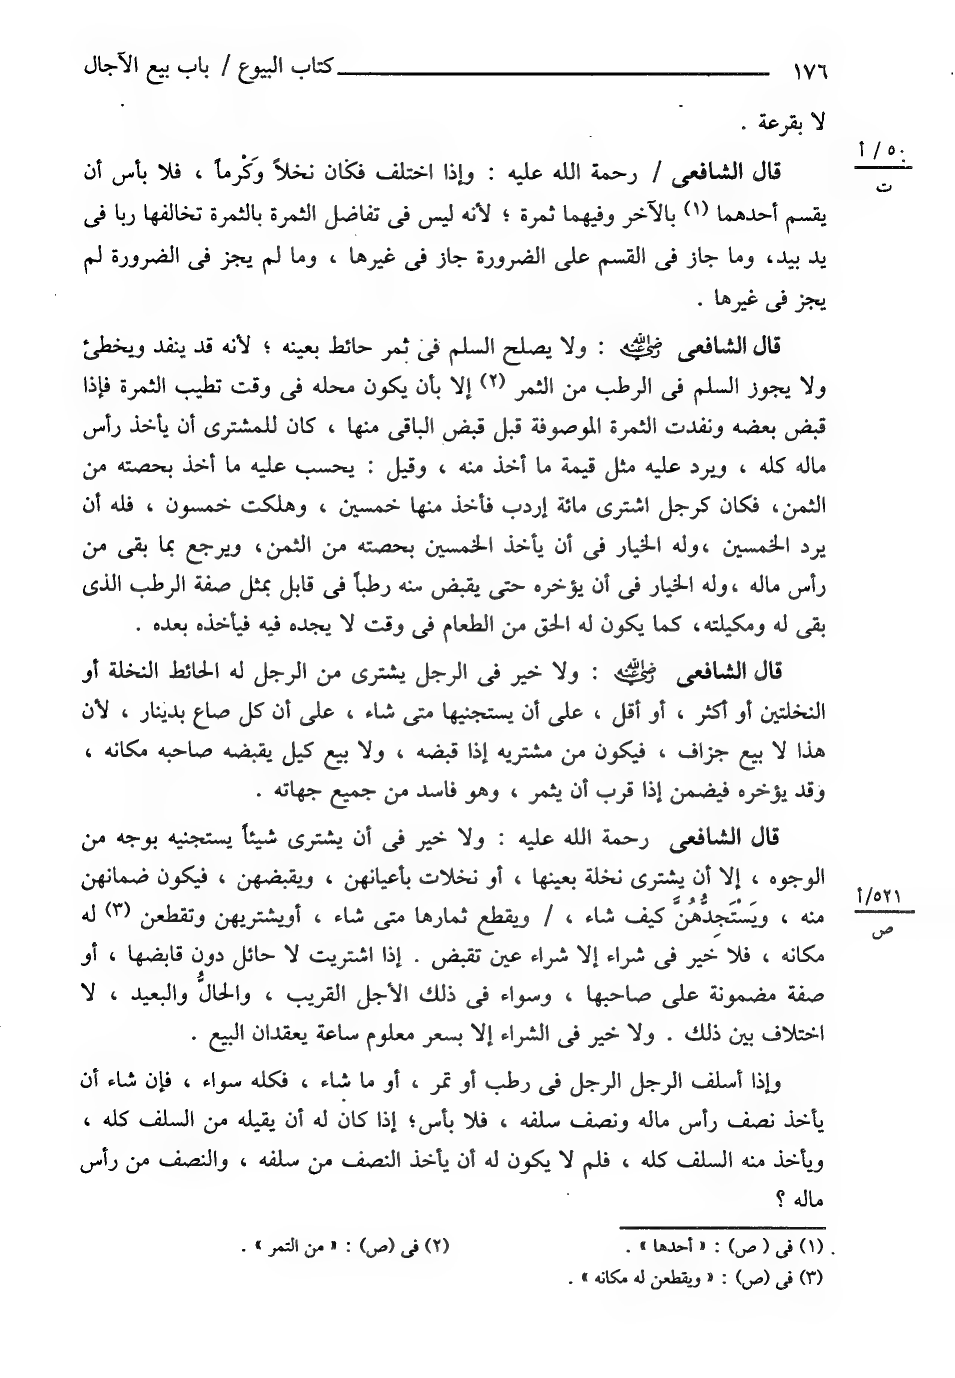 ١٧٦ ــــــــــــــــــــــــــــــــ كتاب البيوع / باب بيع الآجال
لا بقرعة .
٥٠ / أ
ت
قال الشافعى / رحمة الله عليه : وإذا اختلف فكان نخلاً وكَرْماً ، فلا بأس أن
يقسم أحدهما (١) بالآخر وفيهما ثمرة ؛ لأنه ليس فى تفاضل الثمرة بالثمرة تخالفها ربا فى
يد بيد، وما جاز فى القسم على الضرورة جاز فى غيرها ، وما لم يجز فى الضرورة لم
يجز فى غيرها .
قال الشافعى رضي الله عنه : ولا يصلح السلم فى ثمر حائط بعينه ؛ لأنه قد ينفد ويخطئ
ولا يجوز السلم فى الرطب من الثمر (٢) إلا بأن يكون محله فى وقت تطيب الثمرة فإذا
قبض بعضه ونفدت الثمرة الموصوفة قبل قبض الباقى منها ، كان للمشترى أن يأخذ رأس
ماله كله ، ويرد عليه مثل قيمة ما أخذ منه ، وقيل : يحسب عليه ما أخذ بحصته من
الثمن، فكان كرجل اشترى مائة إردب فأخذ منها خمسين ، وهلكت خمسون ، فله أن
يرد الخمسين ،وله الخيار فى أن يأخذ الخمسين بحصته من الثمن، ويرجع بما بقى من
رأس ماله ،وله الخيار فى أن يؤخره حتى يقبض منه رطباً فى قابل بمثل صفة الرطب الذى
بقى له ومكيلته، كما يكون له الحق من الطعام فى وقت لا يجده فيه فيأخذه بعده .
قال الشافعى رضي الله عنه : ولا خير فى الرجل يشترى من الرجل له الحائط النخلة أو
النخلتين أو أكثر ، أو أقل ، على أن يستجنيها متى شاء ، على أن كل صاع بدينار ، لأن
هذا لا بيع جزاف ، فيكون من مشتريه إذا قبضه ، ولا بيع كيل يقبضه صاحبه مكانه ،
وقد يؤخره فيضمن إذا قرب أن يثمر ، وهو فاسد من جميع جهاته .
قال الشافعى رحمة الله عليه : ولا خير فى أن يشترى شيئاً يستجنيه بوجه من
الوجوه ، إلا أن يشترى نخلة بعينها ، أو نخلات بأعيانهن ، ويقبضهن ، فيكون ضمانهن
٥٢١/أ
ص
منه ، ويَسْتَجِدُّهُنَّ كيف شاء ، / ويقطع ثمارها متى شاء ، أويشتريهن وتقطعن (٣) له
مكانه ، فلا خير فى شراء إلا شراء عين تقبض . إذا اشتريت لا حائل دون قابضها ، أو
صفة مضمونة على صاحبها ، وسواء فى ذلك الأجل القريب ، والحالُّ والبعيد ، لا
اختلاف بين ذلك . ولا خير فى الشراء إلا بسعر معلوم ساعة يعقدان البيع .
وإذا أسلف الرجل الرجل فى رطب أو تمر ، أو ما شاء ، فكله سواء ، فإن شاء أن
يأخذ نصف رأس ماله ونصف سلفه ، فلا بأس؛ إذا كان له أن يقيله من السلف كله ،
ويأخذ منه السلف كله ، فلم لا يكون له أن يأخذ النصف من سلفه ، والنصف من رأس
ماله ؟
(١) فى ( ص) : « أحدها » . (٢) فى (ص) : « من التمر » .
(٣) فى (ص) : « ويقطعن له مكانه » .